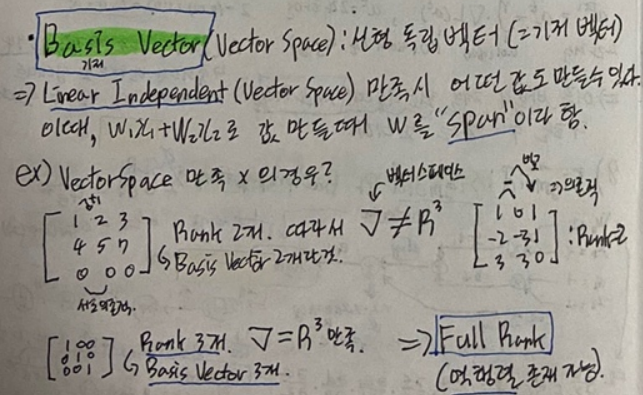 · Basis Vector (Vector Space) : 선형 독립 벡터 (= 기저 벡터)
기저
=> Linear Independent (Vector Space) 만족시 어떤 값도 만들수 있다.
이때, W₁x₁+W₂x₂로 값 만들때 W를 "span"이라 함.
ex) Vector Space 만족 x 의 경우?
벡터스페이스
[1 2 3
4 5 7
0 0 0]
Rank 2개. 따라서 V ≠ R³
↳ Basis Vector 2개란 것.
서로 의존적.
=> 의존적
[1 0 1
-2 -3 1
3 3 0] : Rank=2
[1 0 0
0 1 0
0 0 1]
Rank 3개. V = R³ 만족. => Full Rank
↳ Basis Vector 3개.
(역행렬 존재 가능).